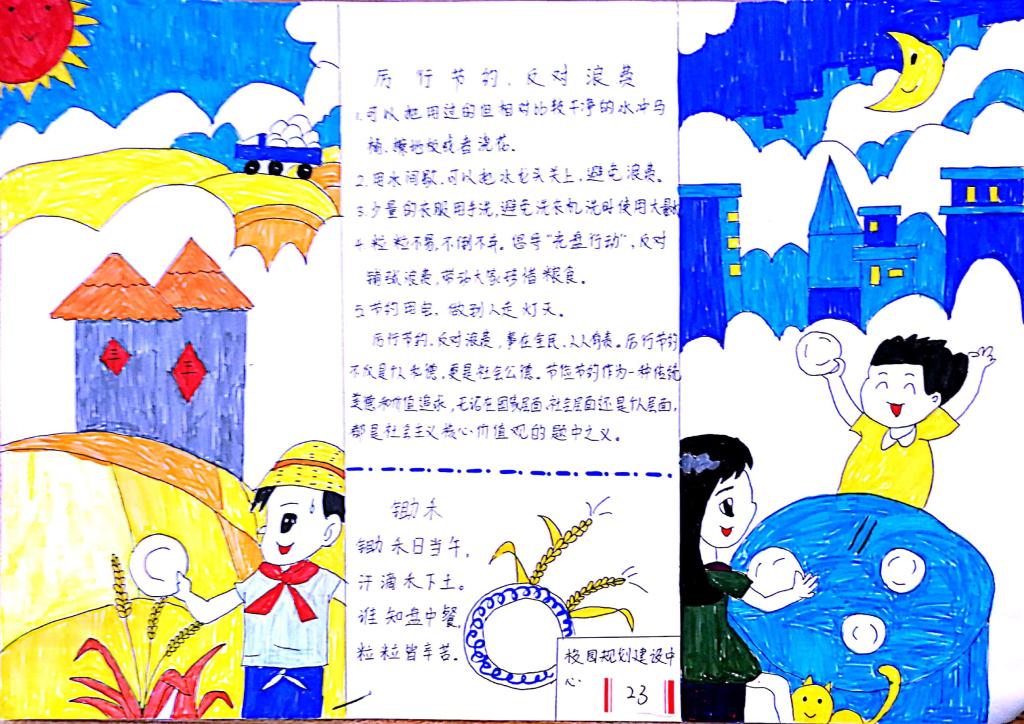 厉行节约、反对浪费
1.可以把用过的但相对比较干净的水冲马
桶、擦地板或者浇花。
2.用水间歇,可以把水龙头关上,避免浪费。
3.少量的衣服用手洗,避免洗衣机洗时使用大量水
4.粒粒不易,不倒不弃。倡导“光盘行动”,反对
铺张浪费,带动大家珍惜粮食。
5.节约用电,做到人走灯灭。
厉行节约、反对浪费,事在全民,人人有责。厉行节约
不仅是个人私德,更是社会公德。节俭节约作为一种传统
美德和价值追求,无论在国家层面、社会层面还是个人层面,
都是社会主义核心价值观的题中之义。
锄禾
锄禾日当午,
汗滴禾下土。
谁知盘中餐,
粒粒皆辛苦。
校园规划建设中
心
23
丰
丰